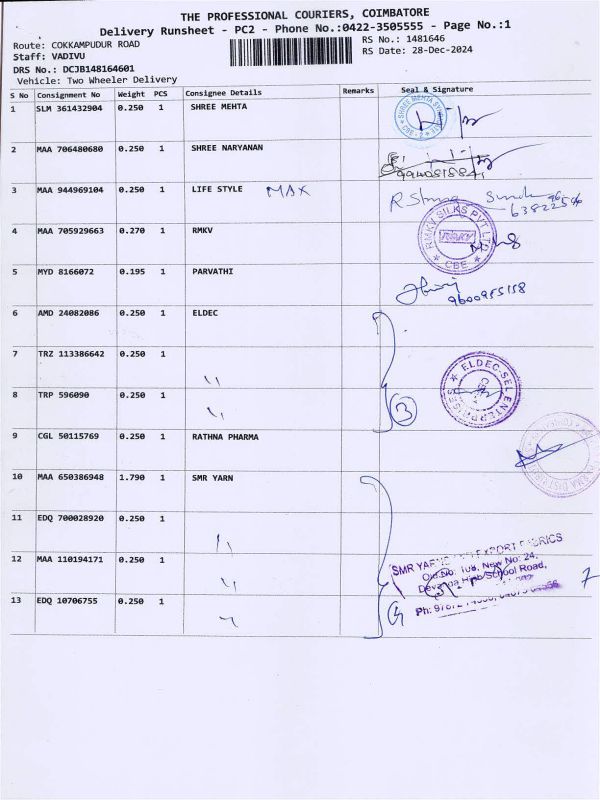 THE PROFESSIONAL COURIERS, COIMBATORE
Delivery Runsheet - PC2 - Phone No.:0422-3505555 - Page No.:1
Route: COKKAMPUDUR ROAD
RS No.: 1481646
Staff: VADIVU
RS Date: 28-Dec-2024
DRS No.: DCJB148164601
Vehicle: Two Wheeler Delivery
S No Consignment No Weight PCS Consignee Details Remarks Seal & Signature
1 SLM 361432904 0.250 1 SHREE MEHTA
2 MAA 706480680 0.250 1 SHREE NARYANAN
3 MAA 944969104 0.250 1 LIFE STYLE MAX
4 MAA 705929663 0.270 1 RMKV
RMKV SILKS PVT LTD
RMKV
CBE
5 MYD 8166072 0.195 1 PARVATHI
9600955158
6 AMD 24082086 0.250 1 ELDEC
7 TRZ 113386642 0.250 1 "
ELDEC-SEL ENTERPRISES
8 TRP 596090 0.250 1 "
3
9 CGL 50115769 0.250 1 RATHNA PHARMA
10 MAA 650386948 1.790 1 SMR YARN
11 EDQ 700028920 0.250 1 "
SMR YARNS EXPORT FABRICS
12 MAA 110194171 0.250 1 "
Old No. 108, New No: 24,
Devanga High School Road,
13 EDQ 10706755 0.250 1 "
4
Ph: